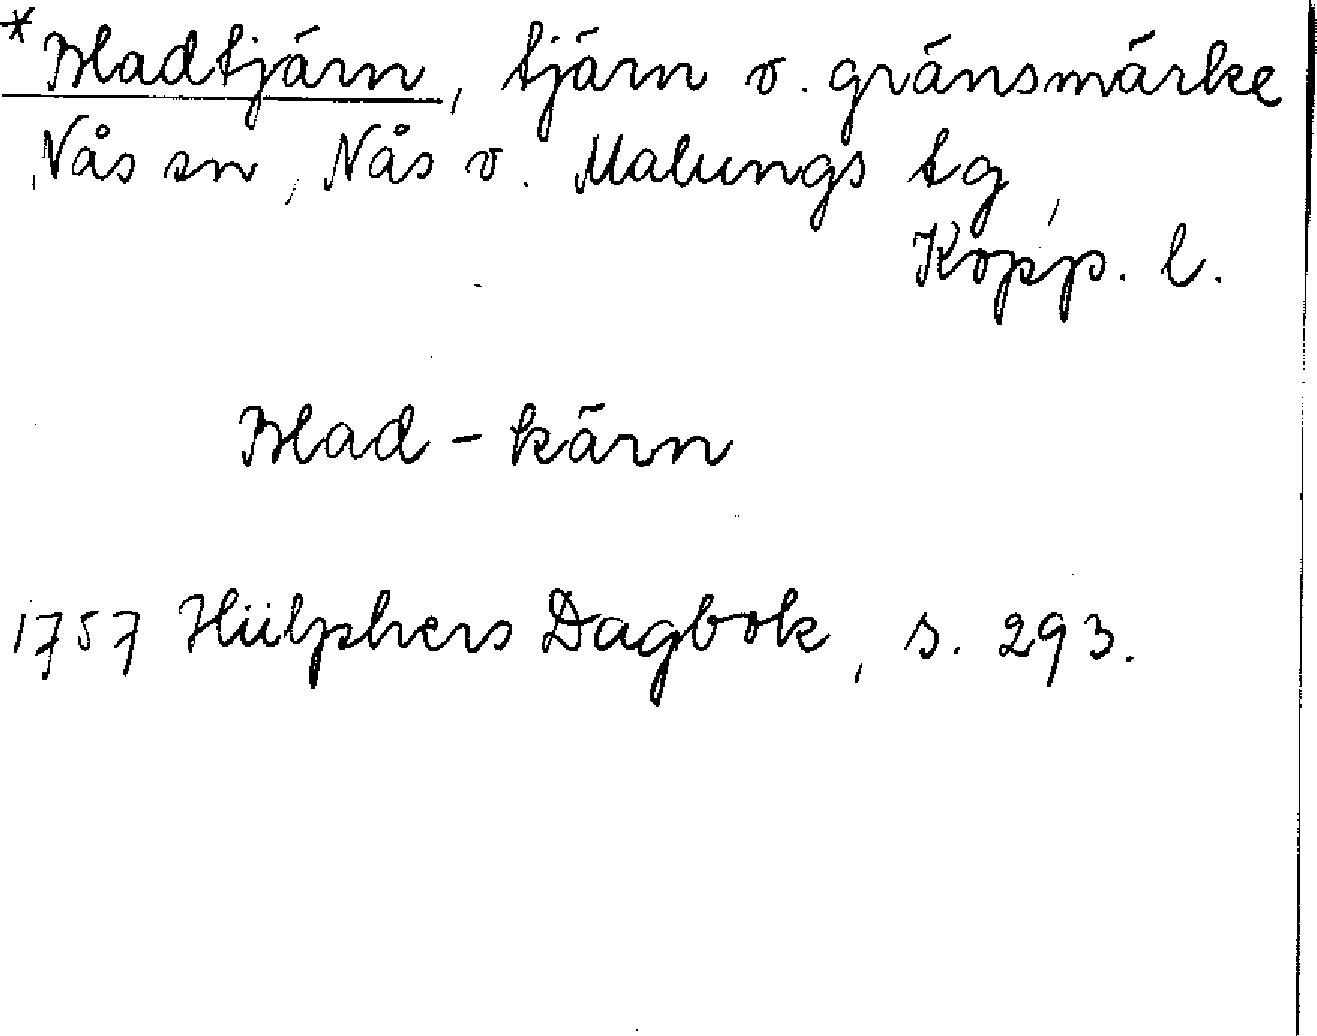 *Bladtjärn, tjärn o. gränsmärke
Nås sn, Nås o. Malungs tg,
Kopp. l.
Blad-kärn
1757 Hülphers Dagbok, s. 293.